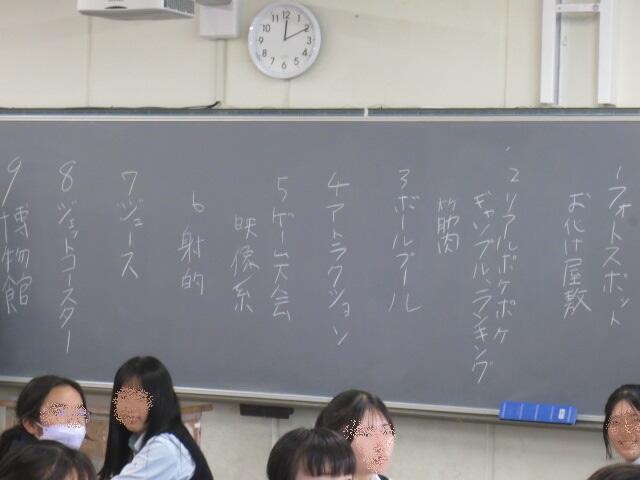 1フォトスポット
お化け屋敷
2リアルポケポケ
ギャンブル、ランキング
筋肉
3ボールプール
4アトラクション
5ゲーム大会
映像系
6射的
7ジュース
8ジェットコースター
9博物館